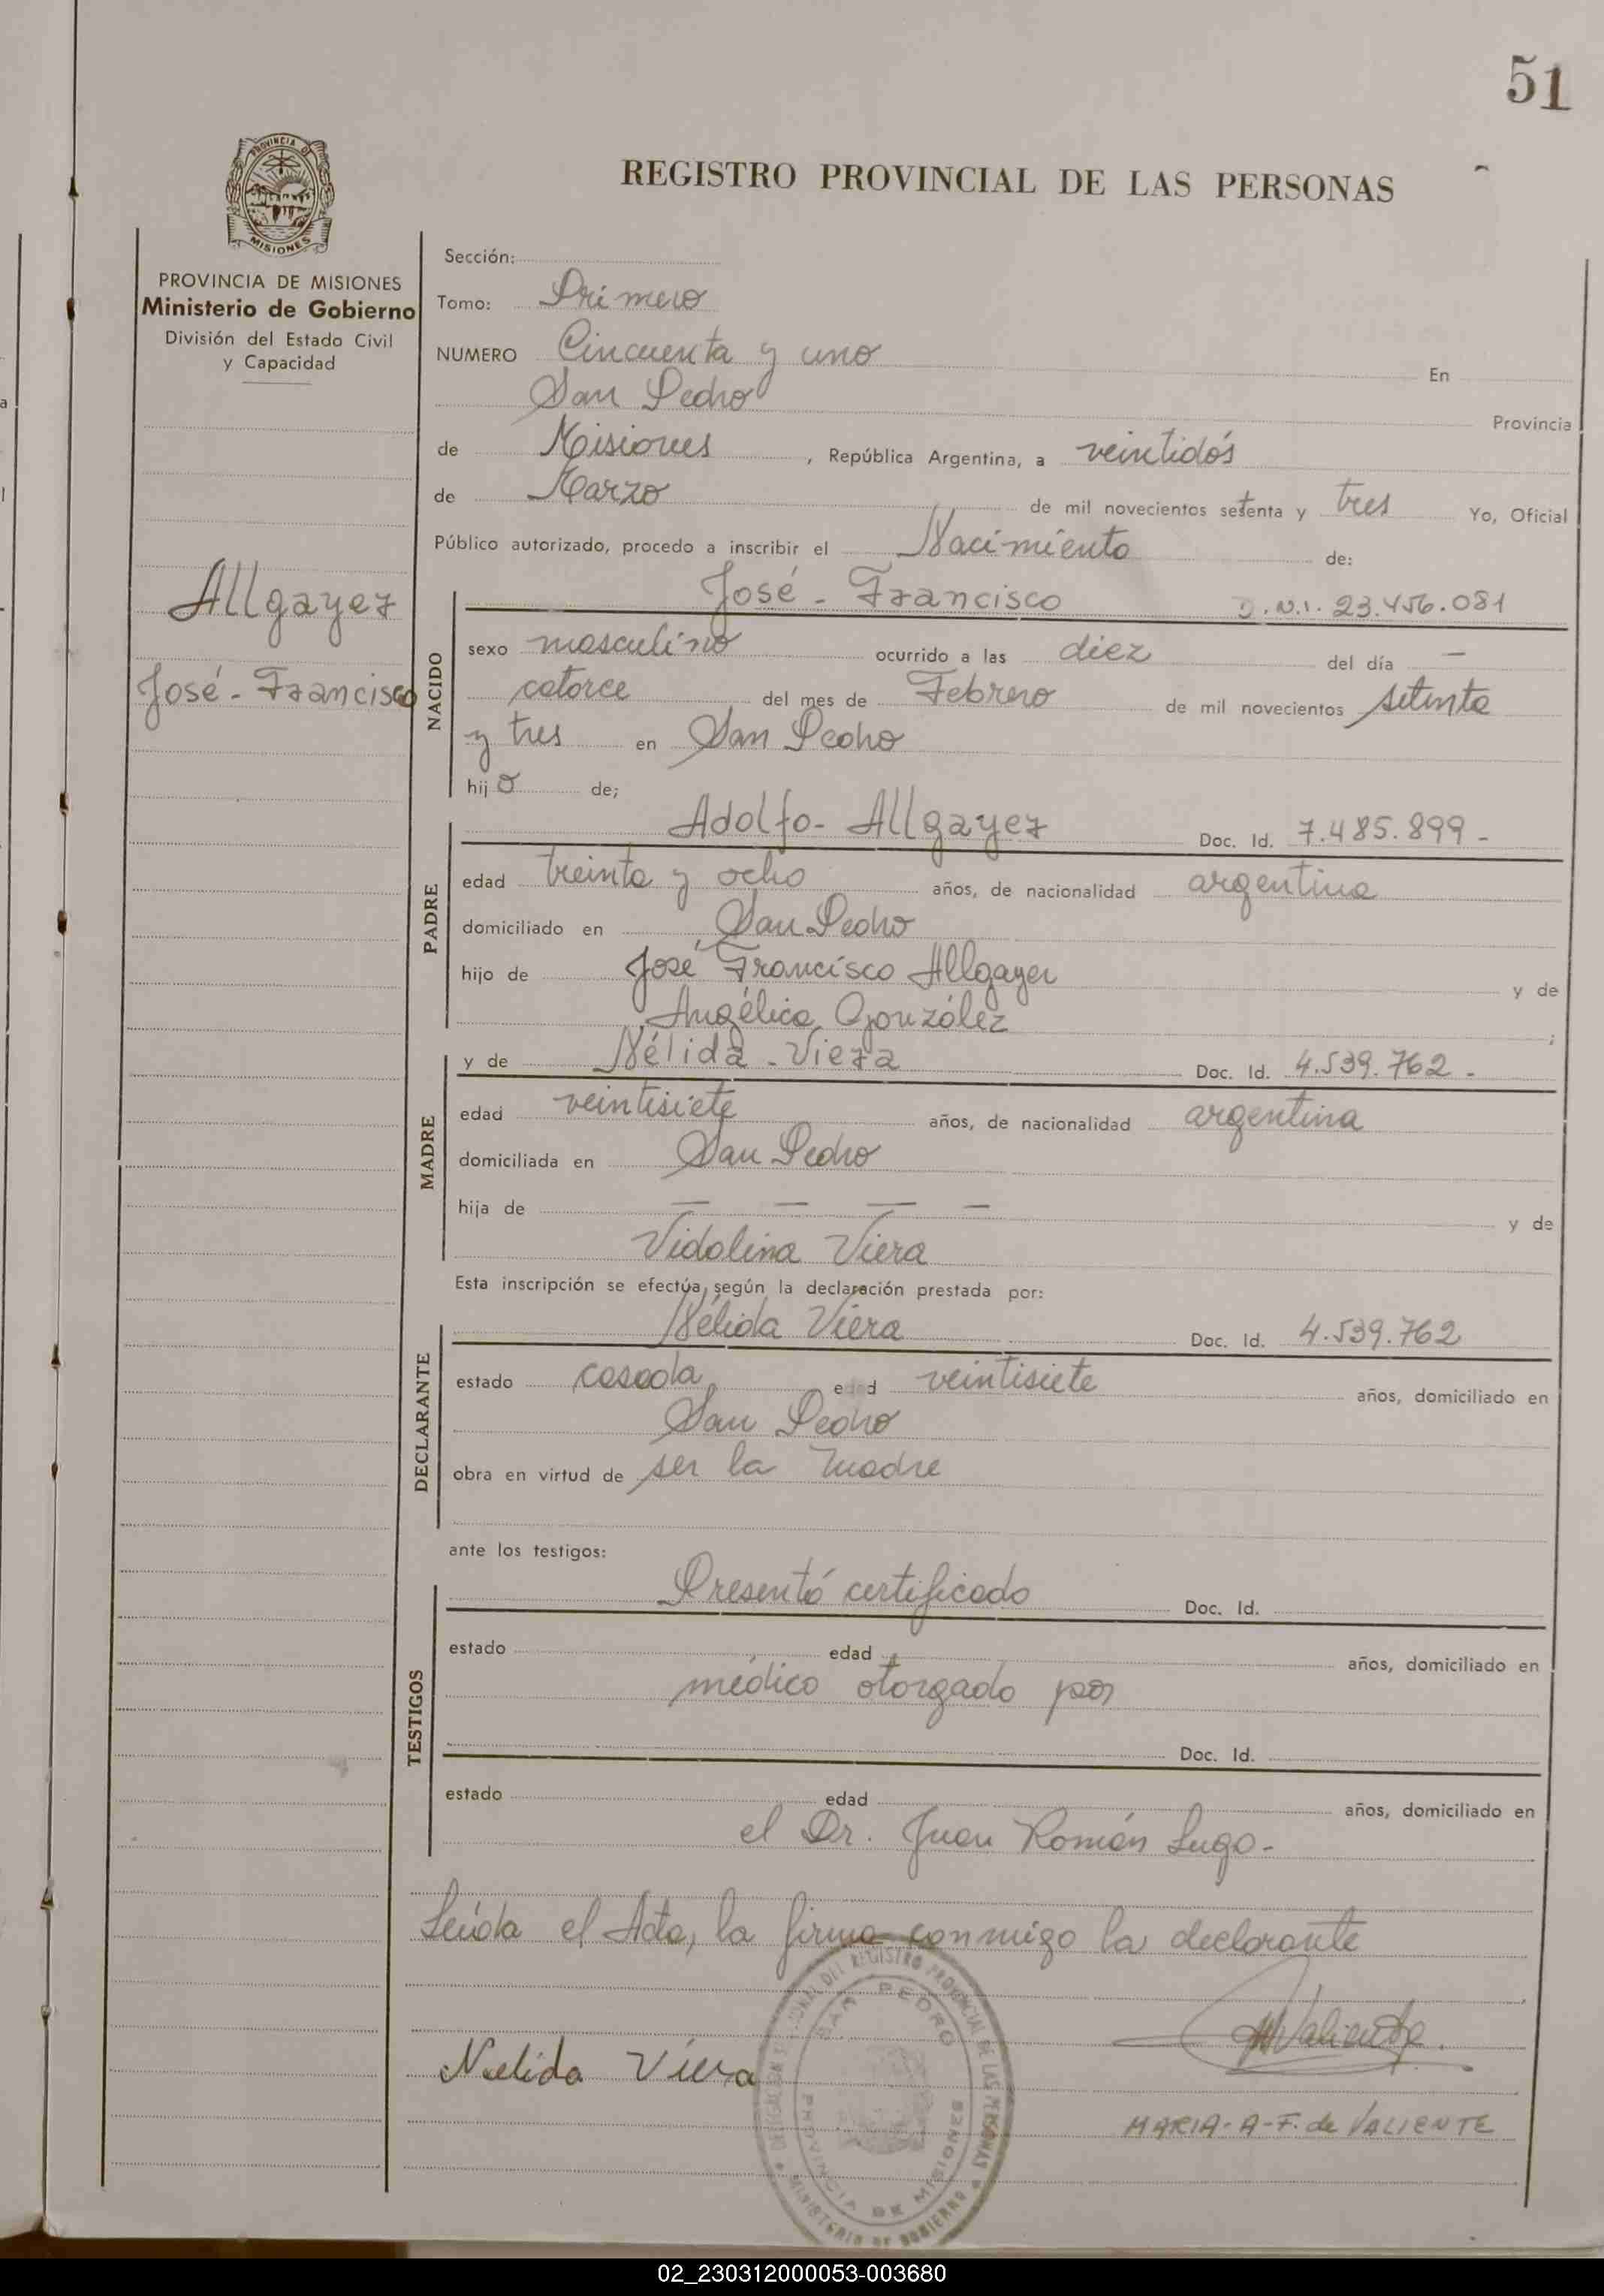 51
REGISTRO PROVINCIAL DE LAS PERSONAS
PROVINCIA DE MISIONES
PROVINCIA DE MISIONES
Ministerio de Gobierno
División del Estado Civil
y Capacidad
Allgayer
José - Francisco
Sección:
Tomo: Primero
NUMERO Cincuenta y uno En
San Pedro Provincia
de Misiones, República Argentina, a veintidós
de Marzo de mil novecientos setenta y tres Yo, Oficial
Público autorizado, procedo a inscribir el Nacimiento de:
José - Francisco D.N.I. 23.456.081
NACIDO
sexo masculino ocurrido a las diez del día —
catorce del mes de Febrero de mil novecientos setenta
y tres en San Pedro
hijo de;
Adolfo - Allgayer Doc. Id. 7.485.899 -
PADRE
edad treinta y ocho años, de nacionalidad argentina
domiciliado en San Pedro
hijo de José Francisco Allgayer y de
Angélica González ;
y de Nélida - Viera Doc. Id. 4.539.762 -
MADRE
edad veintisiete años, de nacionalidad argentina
domiciliada en San Pedro
hija de — — — — y de
Vidolina Viera
Esta inscripción se efectúa, según la declaración prestada por:
Nélida Viera Doc. Id. 4.539.762
DECLARANTE
estado casada edad veintisiete años, domiciliado en
San Pedro
obra en virtud de ser la madre
ante los testigos:
Presentó certificado Doc. Id.
TESTIGOS
estado edad años, domiciliado en
médico otorgado por
Doc. Id.
estado edad años, domiciliado en
el Dr. Juan Román Lugo -
Leída el Acta, la firma conmigo la declarante
DEL REGISTRO PROVINCIAL DE LAS PERSONAS
SAN PEDRO
PROVINCIA DE MISIONES
MINISTERIO DE GOBIERNO
Nelida Viera
MValiente.
MARIA - A - F. de VALIENTE
02_230312000053-003680